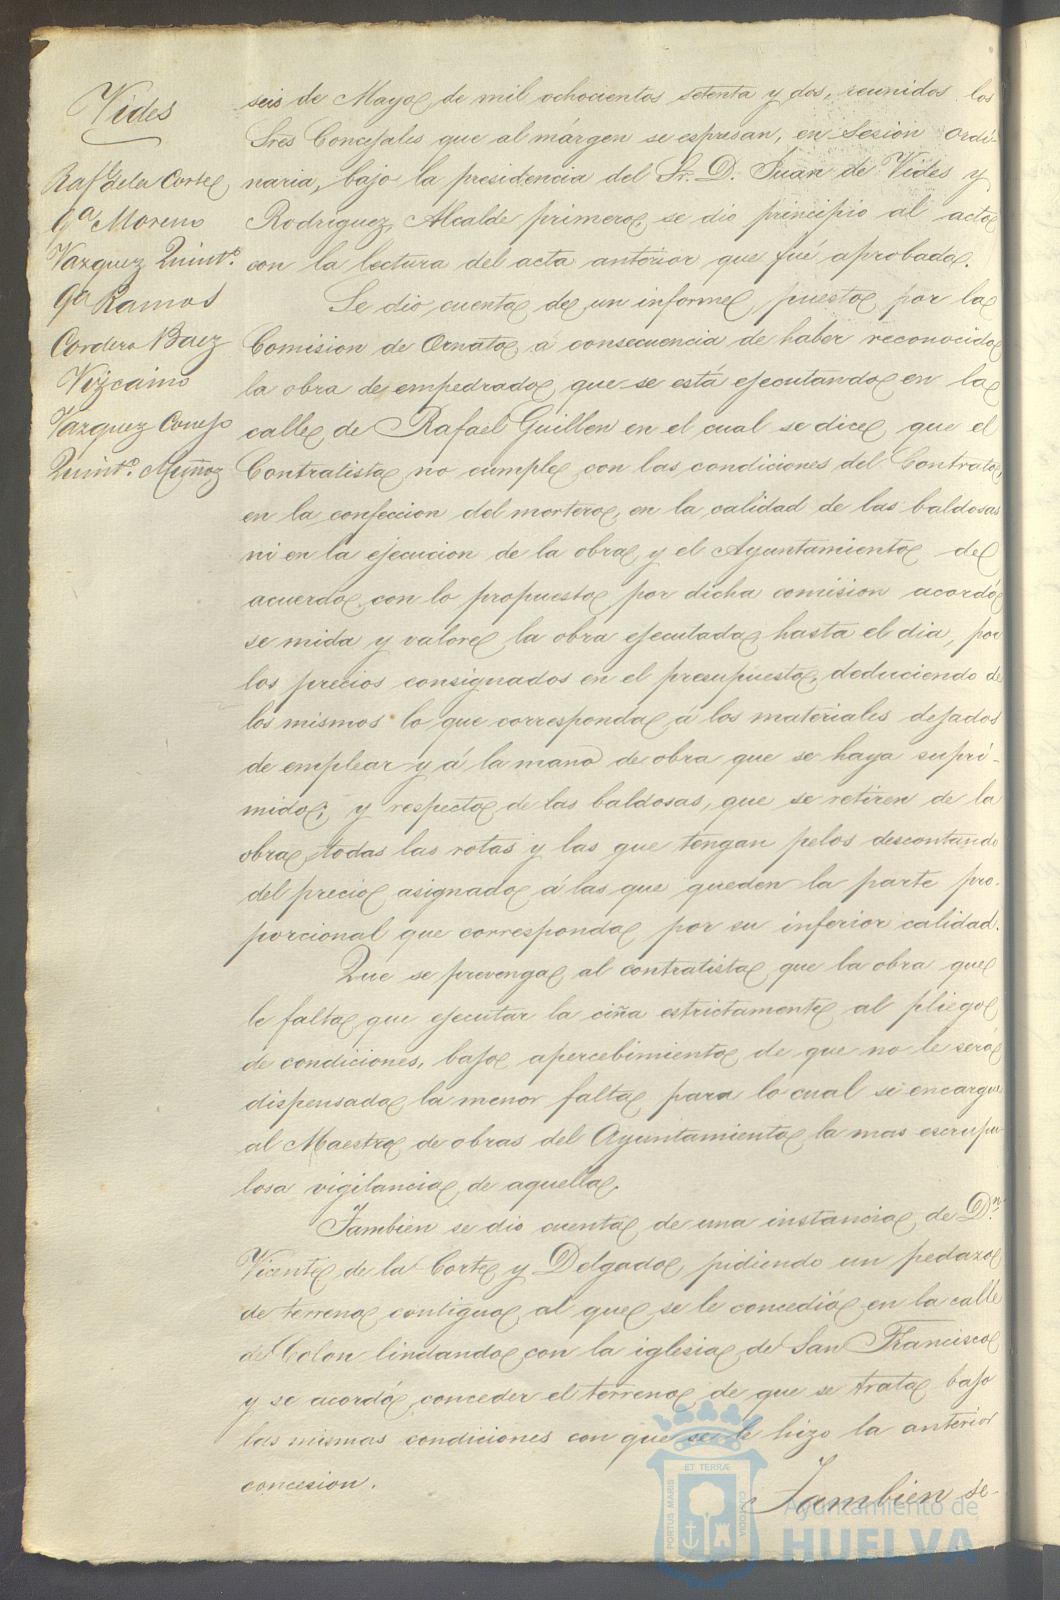 Vides
Raf. de la Corte
Gª Moreno
Vazquez Quintº.
Gª Ramos
Cordero Baez
Vizcaino
Vazquez Conejo
Quintº. Muñoz
seis de Mayo de mil ochocientos setenta y dos, reunidos los
Sres Concejales que al márgen se espresan, en sesion ordi-
naria, bajo la presidencia del Sr. D. Juan de Vides y
Rodriguez Alcalde primero, se dio principio al acto
con la lectura del acta anterior que fué aprobada.
Se dio cuenta de un informe, puesto por la
Comision de Ornato, a consecuencia de haber reconocido
la obra de empedrado que se está ejecutando en la
calle de Rafael Guillen en el cual se dice que el
Contratista no cumple con las condiciones del Contrato,
en la confeccion del mortero, en la calidad de las baldosas
ni en la ejecucion de la obra, y el Ayuntamiento de
acuerdo con lo propuesto por dicha comision acordó
se mida y valore la obra ejecutada hasta el dia, por
los precios consignados en el presupuesto, deduciendo de
los mismos lo que corresponda á los materiales dejados
de emplear y á la mano de obra que se haya supri-
mido; y respecto de las baldosas, que se retiren de la
obra todas las rotas y las que tengan pelos descontando
del precio asignado á las que queden la parte pro-
porcional que corresponda por su inferior calidad.
Que se prevenga al contratista que la obra que
le falta que ejecutar la ciña estrictamente al pliego
de condiciones, bajo apercebimiento de que no le será
dispensada la menor falta para lo cual se encargue
al Maestro de obras del Ayuntamiento la mas escrupu
losa vigilancia de aquella.
Tambien se dio cuenta de una instancia de Dn.
Vicente de la Corte y Delgado, pidiendo un pedazo
de terreno contiguo al que se le concedió en la calle
de Colon lindando con la iglesia de San Francisco
y se acordó conceder el terreno de que se trata bajo
las mismas condiciones con que se le hizo la anterior
concesion.
Tambien se-
ET TERRÆ
PORTUS MARIS
CUSTODIA
Ayuntamiento de
HUELVA